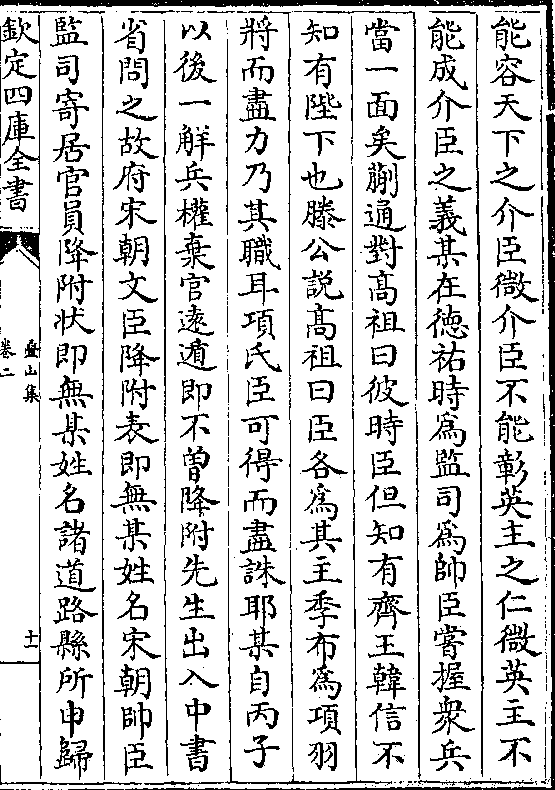 能容天下之介臣微介臣不能彰英主之仁微英主不
能成介臣之義某在德祐時為監司為帥臣嘗握衆兵
當一面矣蒯通對髙祖曰彼時臣但知有齊王韓信不
知有陛下也滕公説髙祖曰臣各為其主季布為項羽
將而盡力乃其職耳項氏臣可得而盡誅耶某自丙子
以後一解兵權棄官逺遁即不曽降附先生出入中書
省問之故府宋朝文臣降附表即無某姓名宋朝帥臣
監司寄居官員降附状即無某姓名諸道路縣所申歸
欽定四庫全書
疊山集
卷二
十一